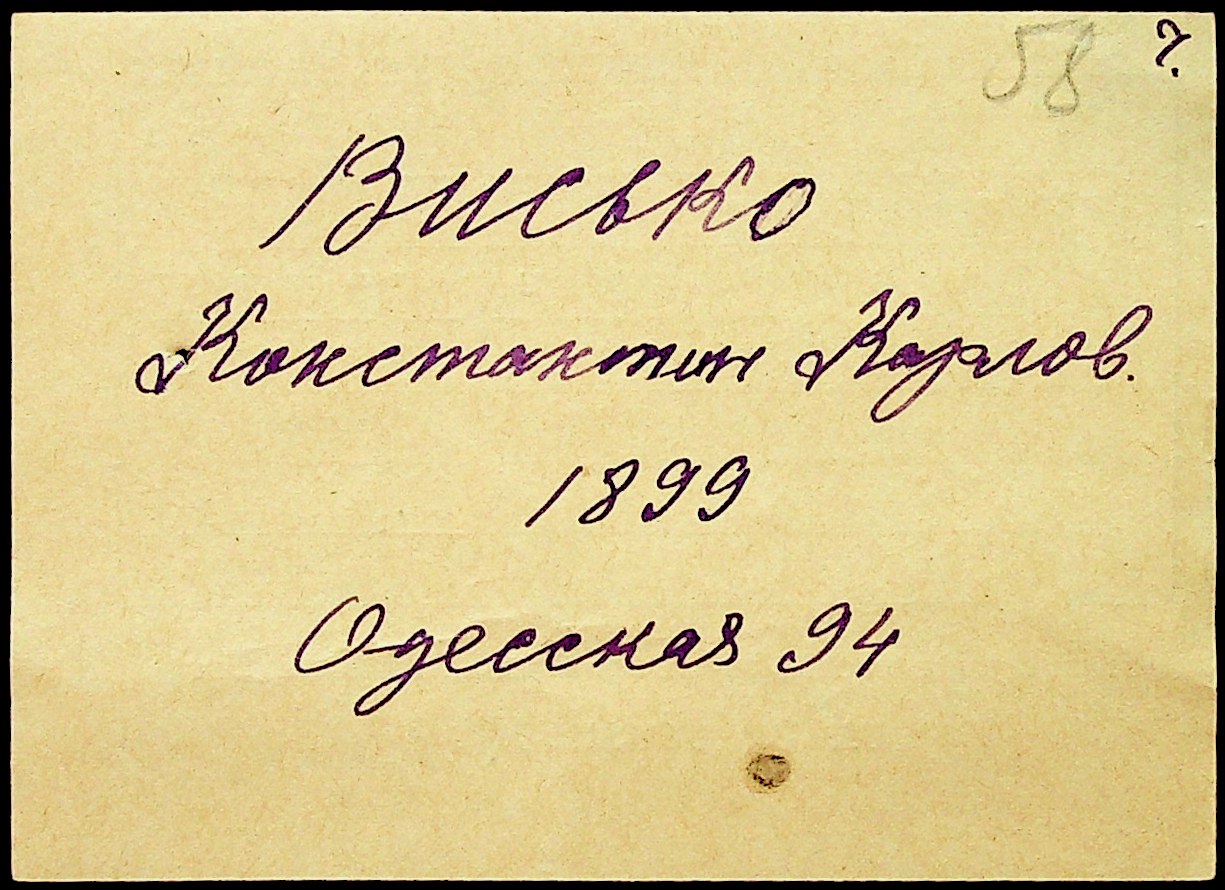 58
Висько
Константин Карлов.
1899
Одесская 94